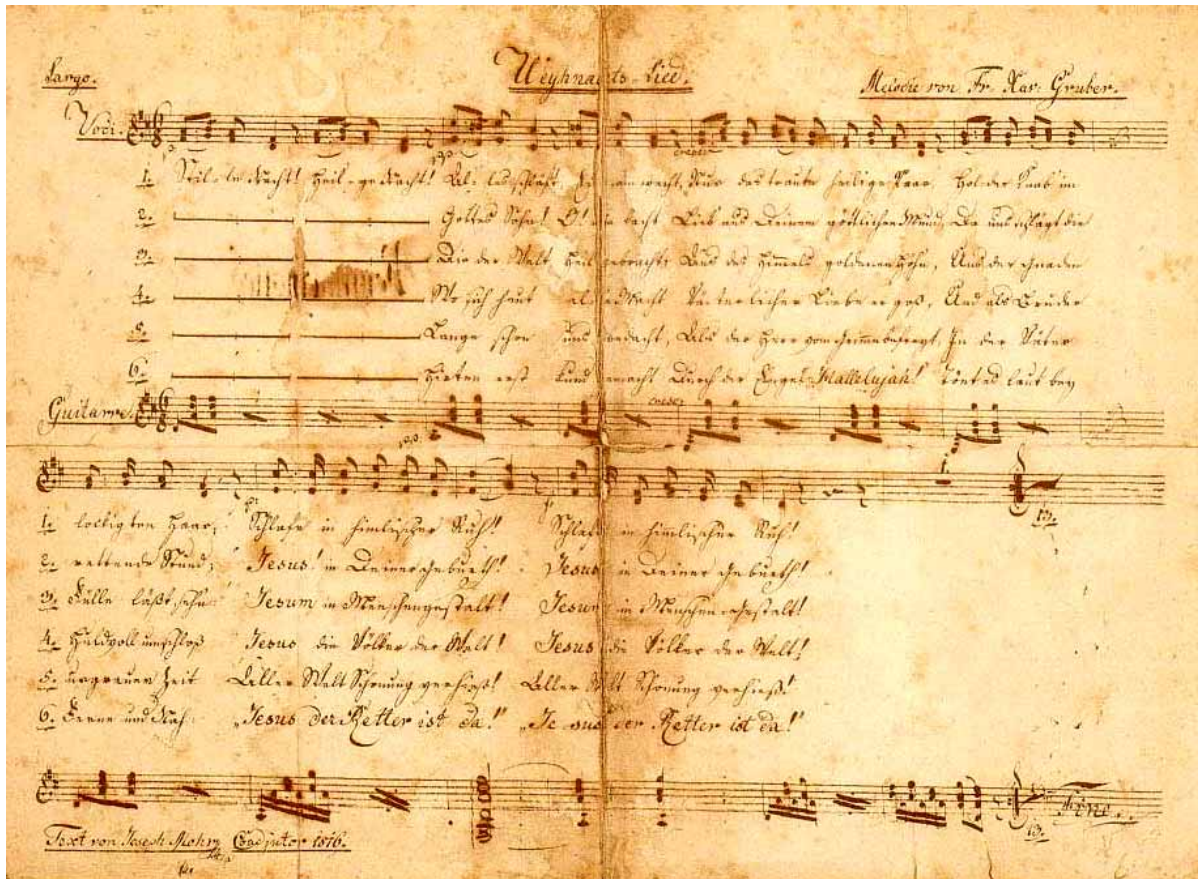 Largo.
Weyhnachts-Lied.
Melodie von Fr. Xav: Gruber.
Voci.
cresc:
1. Stil-le Nacht! Heil-ge Nacht! Al-les schläft, Ein-sam wacht, Nur das traute heilige Paar. Holder Knab im
2. Gottes Sohn! O! wie lacht Lieb aus Deinem göttlichen Mund, Da uns schlägt die
3. Die der Welt Heil gebracht, Aus des Himmels goldenen Höhn, Aus der Gnaden
4. Wo sich heut alle Macht Väterlicher Liebe ergoß, Und als Bruder
5. Lange schon uns bedacht, Als der Herr vom Grimme befreyt, In der Väter
6. Hirten erst kund gemacht Durch der Engel Hallelujah! Tönt es laut bey
Guitarre.
cresc:
1. lockigten Haar; Schlafe in himlischer Ruh! Schlafe in himlischer Ruh!
2. rettende Stund; Jesus! in Deiner Geburth! Jesus in Deiner Geburth!
3. Fülle läßt sehn Jesum in Menschengestalt! Jesum in Menschengestalt!
4. Huldvoll umschloß Jesus die Völker der Welt! Jesus die Völker der Welt!
5. urgrauer Zeit Aller Welt Schonung verhieß! Aller Welt Schonung verhieß!
6. Ferne und Nah: „Jesus der Retter ist da!" „Jesus der Retter ist da!"
Fine.
Text von Joseph Mohr Coadjutor 1816.